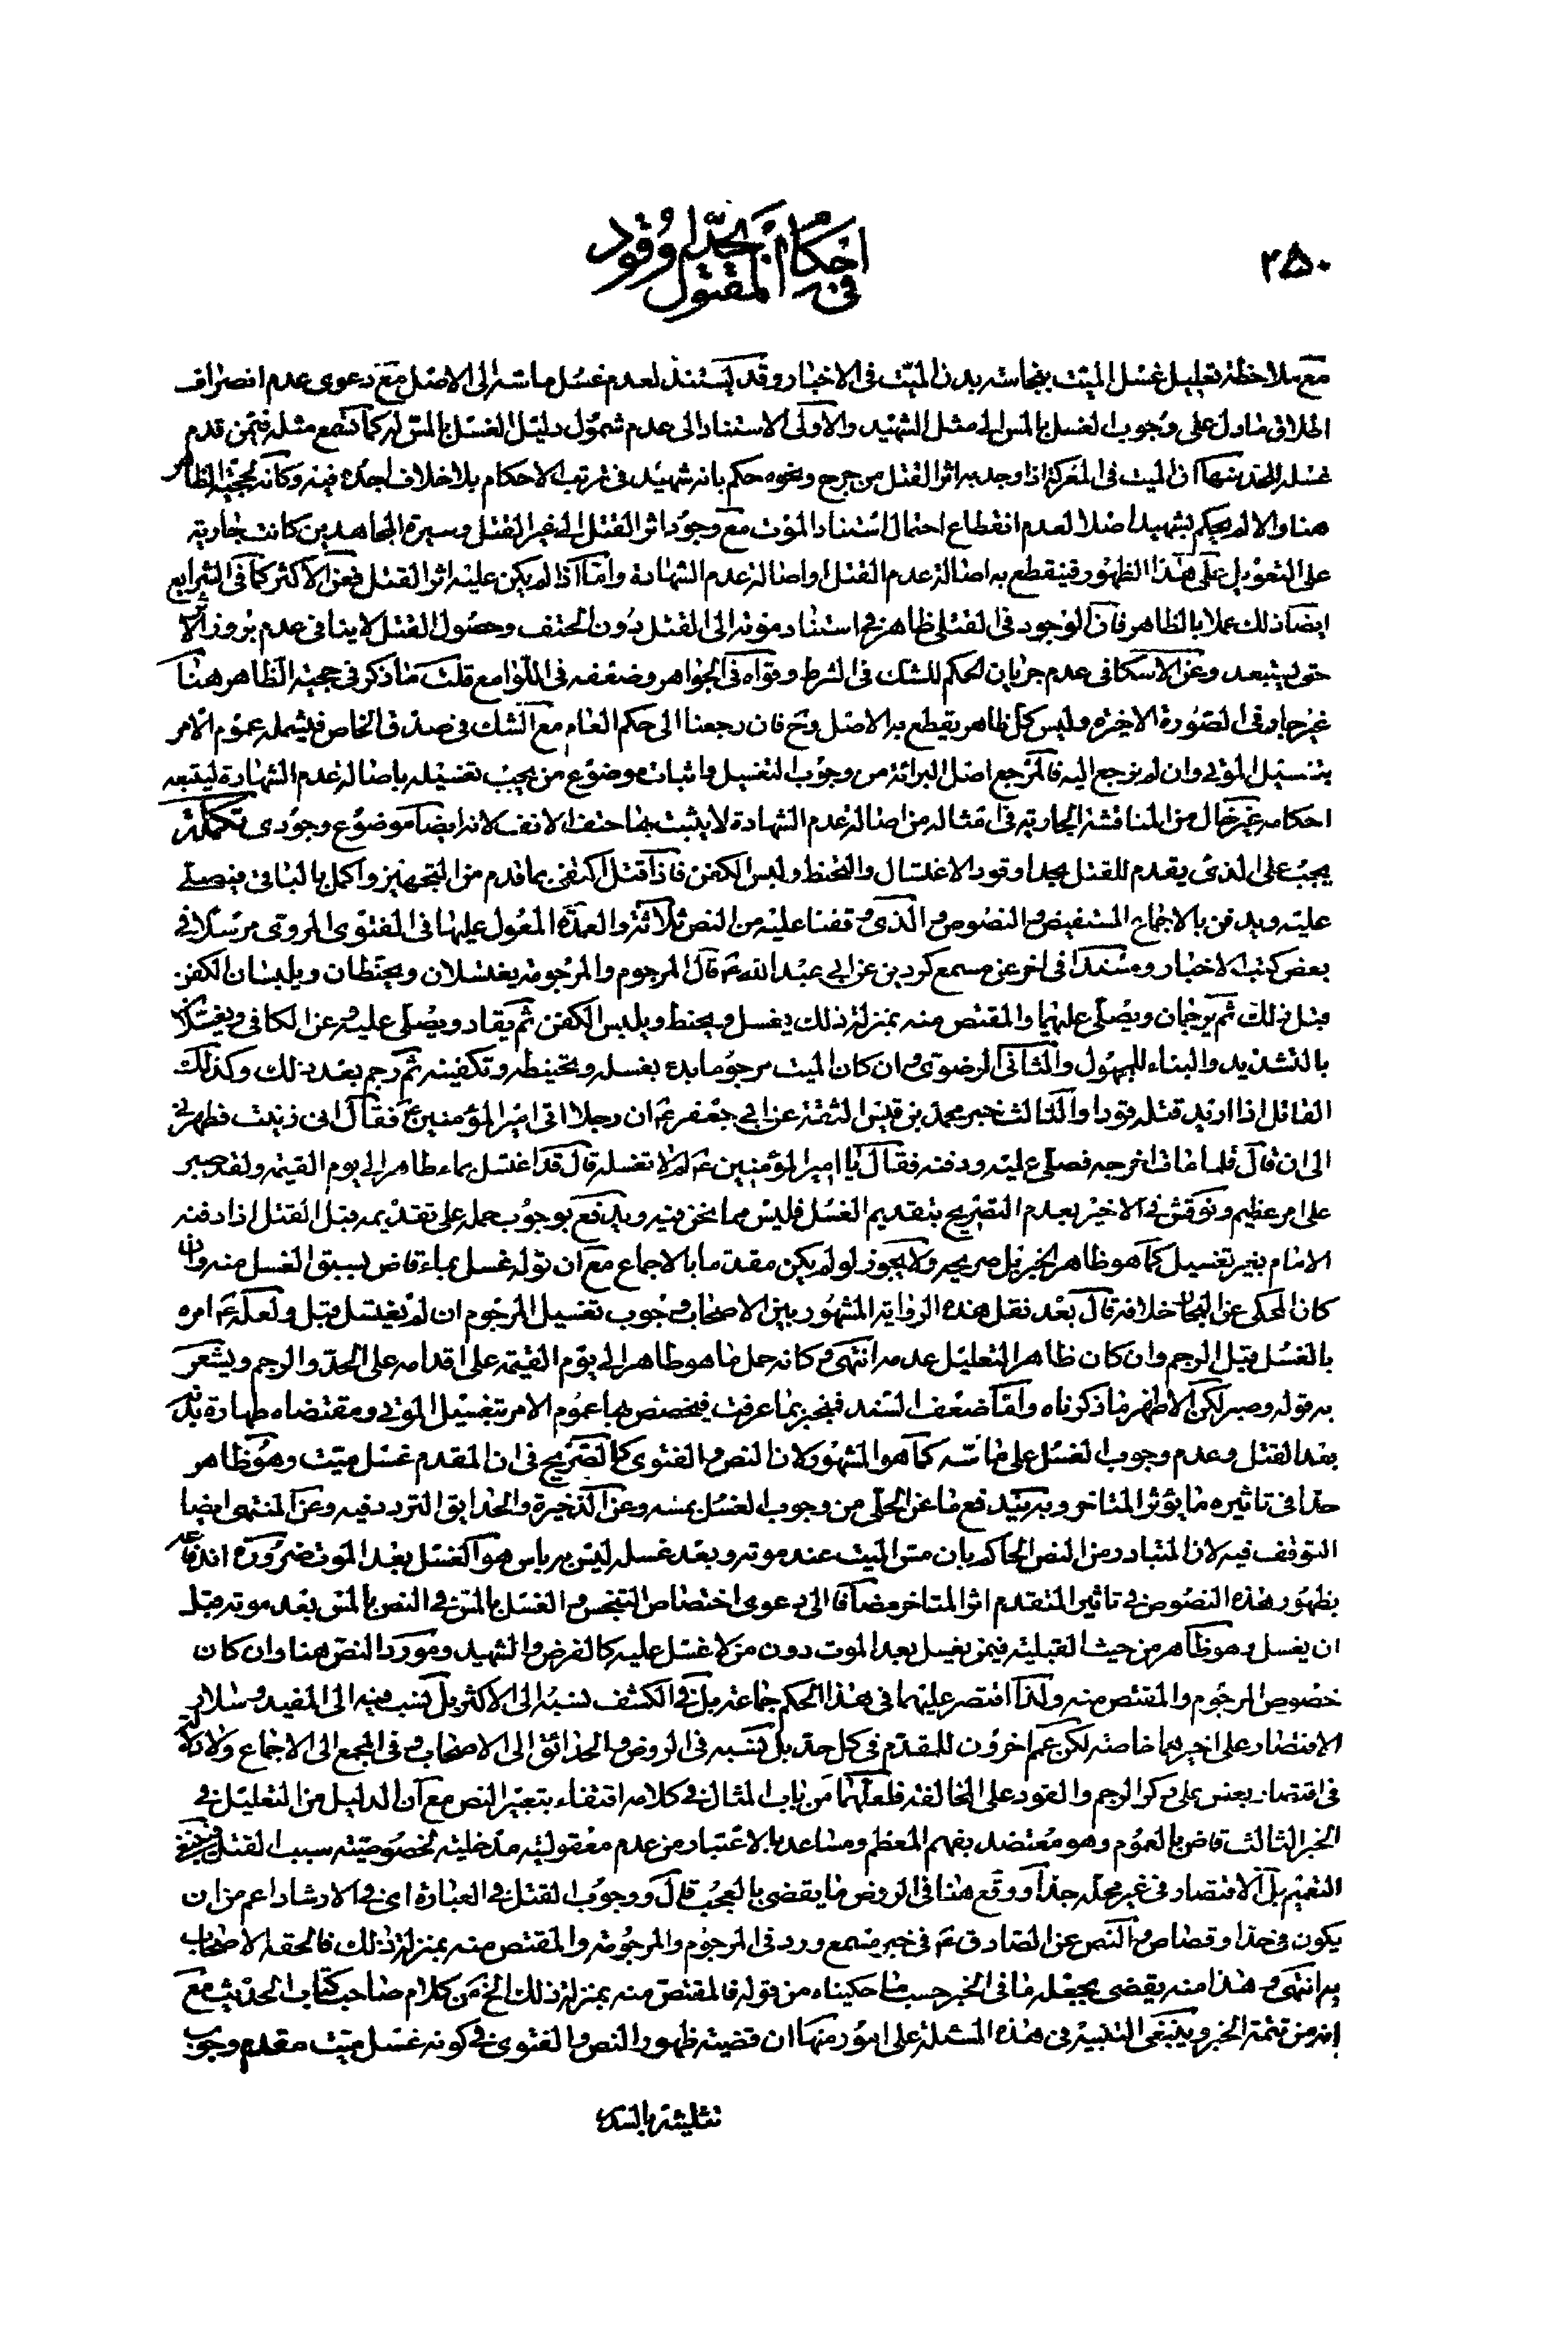 ٢٥٠
في احكام المقتول بحد او قود
مع ملاحظة تعليل غسل الميّت بنجاسة بدن الميّت فى الاخبار وقد يستند لعدم غسل ماسه الى الاصل مع دعوى عدم انصراف
اطلاق ما دل على وجوب الغسل بالمس الى مثل الشهيد والاولى الاستناد الى عدم شمول دليل الغسل بالمس له كما تسمع مثله فيمن قدم
غسله للحد منها ان الميت فى المعركة اذا وجد به اثر القتل من جرح ونحوه حكم بانه شهيد فى ترتب الاحكام بلا خلاف اجده فيه وكانه لحجّية الظاهر
هنا والا لم يحكم بشهيد اصلا لعدم انقطاع احتمال استناد الموت مع وجود اثر القتل الى غير القتل وسيرة المجاهدين كانت جارية
على التعويل على هذا الظهور فينقطع به اصالة عدم القتل او اصالة عدم الشهادة وامّا اذا لم يكن عليه اثر القتل فعن الاكثر كما فى الشرايع
ايضا ذلك عملا بالظاهر فان الوجود فى القتلى ظاهر فى استناد موته الى القتل دون الحتف وحصول القتل لا ينافى عدم بروز الاثر
حتى يستبعد وعن الاسكافى عدم جريان الحكم للشك فى الشرط وقواه فى الجواهر وضعفه فى اللوامع قلت ما ذكر فى حجية الظاهر هنا
غير جار فى الصورة الاخيرة وليس كل ظاهر يقطع به الاصل وح فان رجعنا الى حكم العام مع الشك فى صدق الخاص فيشمله عموم الامر
بتغسيل الموتى وان لم يرجع اليه فالمرجع اصل البرائة من وجوب التغسيل واثبات موضوع من يجب تغسيله باصالة عدم الشهادة ليتبعه
احكامه غير خال من المناقشة الجارية فى امثاله من اصالة عدم الشهادة لا يثبت بها حتف الانف لانه ايضا موضوع وجودى تكملة
يجب على الذى يقدم للقتل بحد او قود الاغتسال والتحنط ولبس الكفن فاذا قتل اكتفى بما قدم من التجهيز واكمل بالباقى فيصلى
عليه ويدفن بالاجماع المستفيض والنصوص والذى وقفنا عليه من النص ثلاثة والعمدة المعول عليها فى الفتوى المروى مرسلا فى
بعض كتب الاخبار ومسندا فى اخر عن مسمع كردين عن ابى عبد الله ع قال المرجوم والمرجومة يغتسلان ويحنطان ويلبسان الكفن
قبل ذلك ثم يرجمان ويصلى عليهما والمقتص منه بمنزلة ذلك يغسل ويحنط ويلبس الكفن ثم يقاد ويصلى عليه وعن الكافى ويغسلان
بالتشديد والبناء للمجهول والثانى الرضوى وان كان الميت مرجوما بدء بغسله وتحنيطه وتكفينه ثم رجم بعد ذلك وكذلك
القاتل اذا اريد قتله قودا والثالث خبر محمد بن قيس الثقة عن ابى جعفر ع ان رجلا اتى امير المؤمنين ع فقال انى زنيت فطهرنى
الى ان قال فلما مات اخرجه فصلى عليه ودفنه فقال يا امير المؤمنين ع لم لا تغسله قال قد اغتسل بماء طاهر الى يوم القيمة ولقد صبر
على امر عظيم ونوقش فى الاخير بعدم التصريح بتقديم الغسل فليس مما نحن فيه ويدفع بوجوب حمله على تقديمه قبل القتل اذا دفنه
الامام بغير تغسيل كما هو ظاهر الخبر بل صريحه ولا يجوز لو لم يكن مقدما بالاجماع مع ان قوله غسل بماء قاض بسبق الغسل منه وان
كان المحكى عن البحار خلافه قال بعد نقل هذه الرواية المشهور بين الاصحاب وجوب تغسيل المرجوم ان لم يغتسل قبل ولعله ع امره
بالغسل قبل الرجم وان كان ظاهر التعليل عدمه انتهى وكانه حمل ما هو طاهر الى يوم القيمة على اقدامه على الحد والرجم ويشعر
به قوله وصبر لكن الاظهر ما ذكرناه وامّا ضعف السند فينجبر بما عرفت فيخصص بها عموم الامر بتغسيل الموتى ومقتضاه طهارة بدنه
بعد القتل وعدم وجوب الغسل على ماسّه كما هو المشهور لان النص والفتوى كالصريح فى ان المقدم غسل ميّت وهو ظاهر
جدا فى تاثيره ما يؤثر المتاخر وبه يندفع ما عن الحلّى من وجوب الغسل بمسه وعن الذخيرة والحدايق التردد فيه وعن المنتهى ايضا
التوقف فيه لان المتبادر من النص الحاكم بان مس الميت عند موته وبعد غسله ليس به باس هو الغسل بعد الموت ضرورة اندفاعه
بظهور هذه النصوص فى تاثير المتقدم اثر المتاخر مضافا الى دعوى اختصاص التنجس والغسل بالمس فى النص بالمس بعد موته قبل
ان يغسل وهو ظاهر من حيث القبلية فيمن يغسل بعد الموت دون من لا غسل عليه كالفرض والشهيد ومورد النص هنا وان كان
خصوص المرجوم والمقتص منه ولذا اقتصر عليهما فى هذا الحكم جماعة بل فى الكشف نسبه الى الاكثر بل نسب فيه الى المفيد وسلار
الاقتصار على اخيرهما خاصة لكن عم اخرون للمقدم فى كل حد بل نسبه فى الروض والحدائق الى الاصحاب وفى المجمع الى الاجماع ولا دلالة
فى اقتصار بعض على ذكر الرجم والقود على المخالفة فلعلهما من باب المثال فى كلامه اقتفاء بتعبير النص مع ان الدليل من التعليل فى
الخبر الثالث قاض بالعموم وهو معتضد بفهم المعظم ومساعد بالاعتبار من عدم معقولية مدخلية لخصوصية سبب القتل
التعميم بل الاقتصار فى غير محله جدا ووقع هنا فى الروض ما يقضى بالعجب قال ووجوب القتل فى العبارة اى فى الارشاد اعم من ان
يكون فى حد او قصاص والنص عن الصادق ع فى خبر مسمع ورد فى المرجوم والمرجومة والمقتص منه بمنزلة ذلك فالحقه الاصحاب
به انتهى وهذا منه يقضى بجعله ما فى الخبر حسب ما حكيناه من قوله فالمقتص منه بمنزلة ذلك الخ من كلام صاحب كتاب الحديث مع
انه من تتمة الخبر وينبغى التنبيه فى هذه المسئلة على امور منها ان قضية ظهور النص والفتوى فى كونه غسل ميّت مقدم وجوب
تثليثه بالسدر